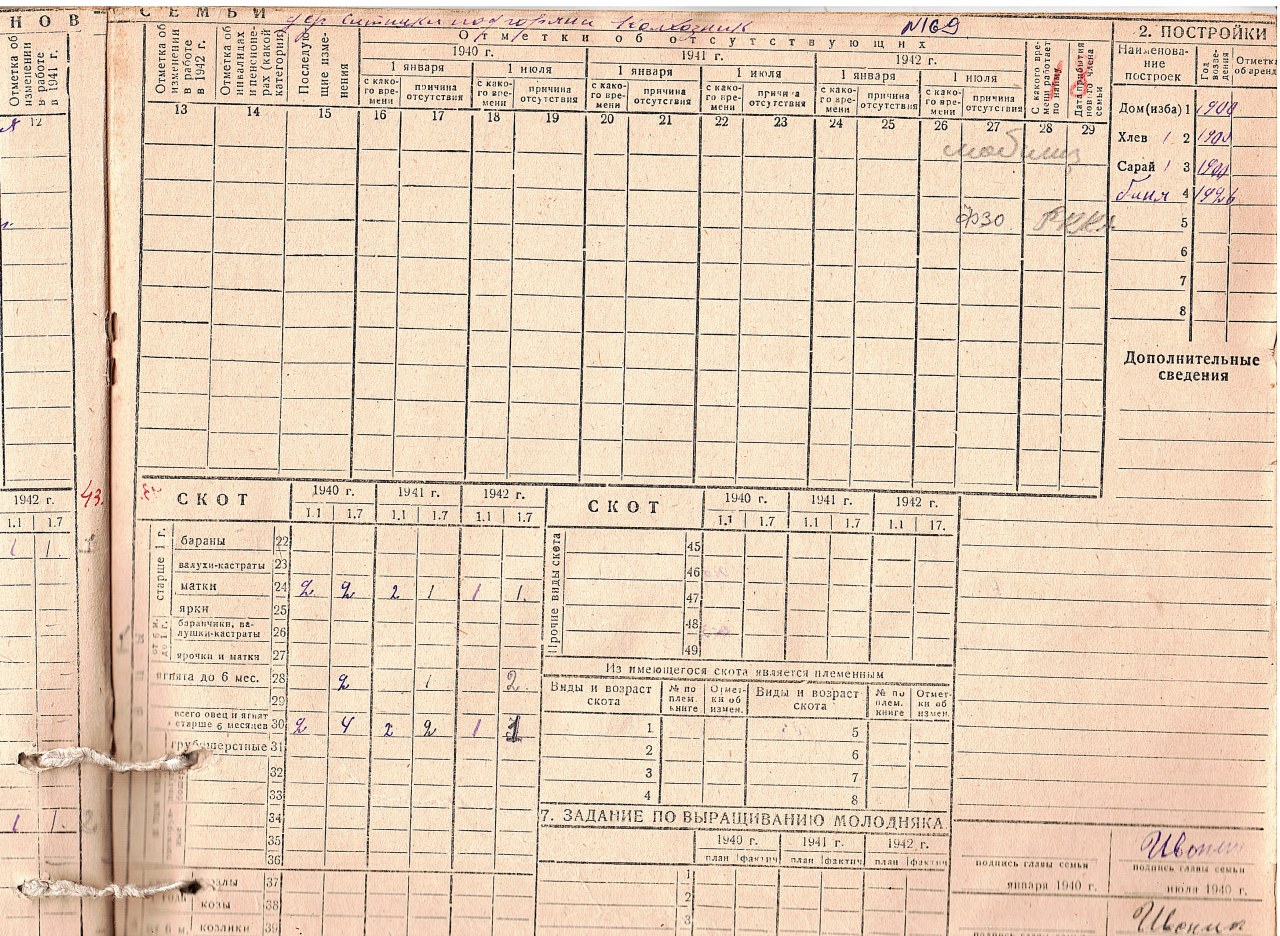 НОВ
СЕМЬИ
колхозник
N169
Отметка об изменении в работе в 1941 г.
12
Отметка об изменении в работе в 1942 г.
Отметка об инвалидах и пенсионерах (какой категории)
Последующие изменения
Отметки об отсутствующих
1940 г.
1941 г.
1942 г.
1 января
1 июля
1 января
1 июля
1 января
1 июля
с какого времени
причина отсутствия
с какого времени
причина отсутствия
с какого времени
причина отсутствия
с какого времени
причина отсутствия
с какого времени
причина отсутствия
с какого времени
причина отсутствия
С какого времени работает по найму
Дата прибытия нового члена семьи
13 14 15 16 17 18 19 20 21 22 23 24 25 26 27 28 29
мобилиз
ФЗО РККА
2. ПОСТРОЙКИ
Наименование построек
Год возведения
Отметка об аренд
Дом(изба) 1
Хлев 1 2
Сарай 1 3
баня 4 1926
5
6
7
8
Дополнительные сведения
1942 г.
43.
1.1 1.7
1 1.
1 1.
СКОТ
1940 г. 1941 г. 1942 г.
1.1 1.7 1.1 1.7 1.1 1.7
старше 1 г.
бараны 22
валухи-кастраты 23
матки 24 2 2 2 1 1 1.
ярки 25
от 6 м. до 1 г.
баранчики, валушки-кастраты 26
ярочки и матки 27
ягнята до 6 мес. 28 2 1 2.
29
всего овец и ягнят старше 6 месяцев 30 2 4 2 2 1 1
грубошерстные 31
32
33
34
35
36
37
козы 38
козлики 39
СКОТ
1940 г. 1941 г. 1942 г.
1.1 1.7 1.1 1.7 1.1 17.
Прочие виды скота
45
46
47
48
49
Из имеющегося скота является племенным
Виды и возраст скота
№ по плем. книге
Отметки об измен.
Виды и возраст скота
№ по плем. книге
Отметки об измен.
1 5
2 6
3 7
4 8
7. ЗАДАНИЕ ПО ВЫРАЩИВАНИЮ МОЛОДНЯКА
1940 г. 1941 г. 1942 г.
план фактич план фактич план фактич
1
2
3
подпись главы семьи
января 1940 г.
подпись главы семьи
июля 1940 г.
подпись главы семьи